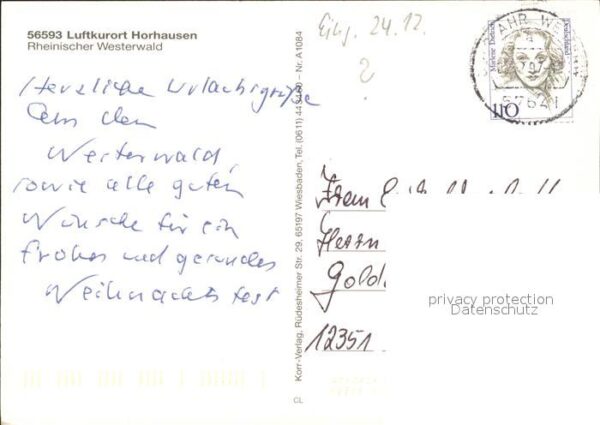 56593 Luftkurort Horhausen
Rheinischer Westerwald
Herzliche Urlaubsgrüße
aus dem
Westerwald,
sowie alle guten
Wünsche für ein
frohes und gesundes
Weihnachtsfest
Korr-Verlag, Rüdesheimer Str. 29, 65197 Wiesbaden, Tel. (0611) – Nr. A1084
CL
Eing. 24.12.
Marlene Dietrich
Deutschland
110
57641
Herrn
12351
privacy protection
Datenschutz